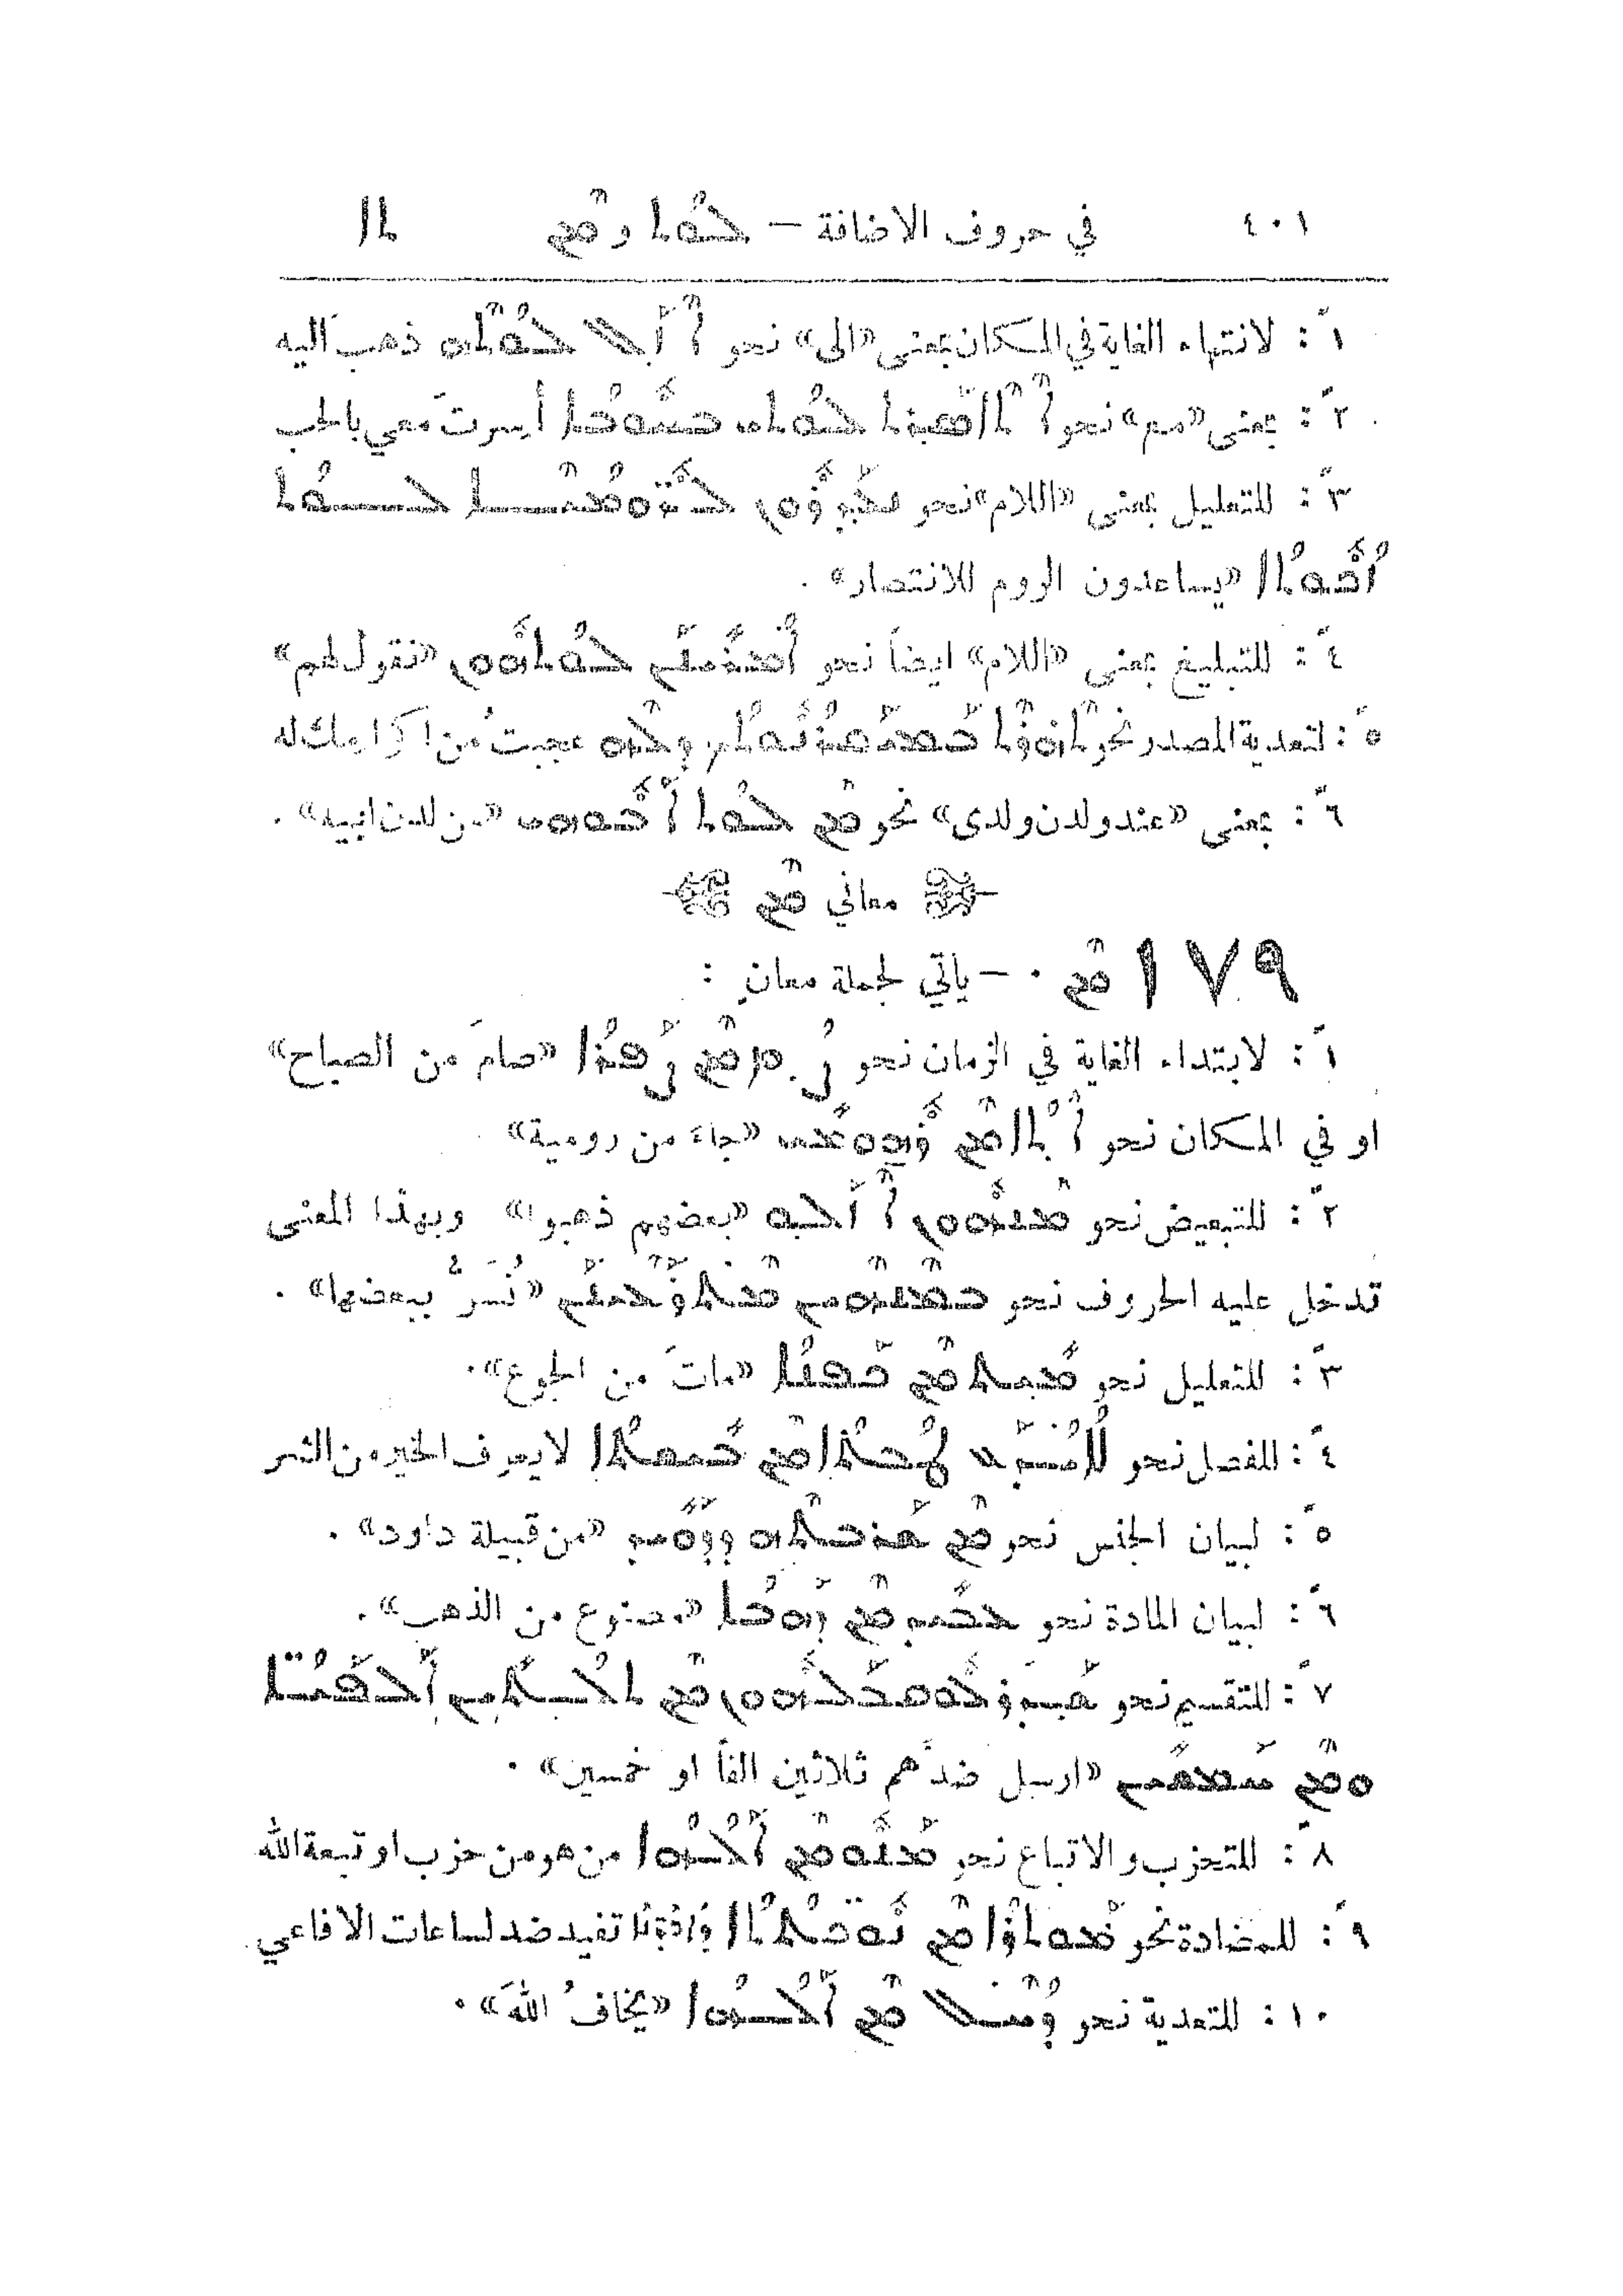 ٤٠١ في حروف الاضافة — ܠܘܳܬ ܘܡܶܢ ܬܐ
١ً : لانتهاء الغاية في المكان بمعنى «الى» نحو ܐܶܙܰܠ ܠܘܳܬܶܗ ذهب اليه
٢ً : بمعنى «مع» نحو ܠܘܳܬܝ ܒܚܽܘܒܳܐ أيسرتَ معي بالحب
٣ً : للتعليل بمعنى «اللام» نحو ܠܘܳܬ
ܙܳܟܽܘܬܳܐ «يساعدون الروم للانتصار» .
٤ً : للتبليغ بمعنى «اللام» ايضاً نحو ܐܳܡܪܺܝܢܰܢ ܠܘܳܬܗܽܘܢ «نقول لهم»
٥ً : لتعدية المصدر نحو ܕܠܶܗ عجبتُ من اكرامك له
٦ً : بمعنى «عند ولدن ولدى» نحو ܡܶܢ ܠܘܳܬ ܐܰܒܽܘܗܝ «من لدن ابيه» .
معاني ܡܶܢ
١٧٩ ܡܶܢ . — يأتي لجملة معانٍ :
١ً : لابتداء الغاية في الزمان نحو ܨܳܡ ܡܶܢ ܨܰܦܪܳܐ «صامَ من الصباح»
او في المكان نحو ܐܶܬܳܐ ܡܶܢ ܪܽܗܘܡܺܝ «جاءَ من رومية»
٢ً : للتبعيض نحو ܡܶܢܗܽܘܢ ܐܶܙܰܠܘ «بعضهم ذهبوا» وبهذا المعنى
تدخل عليه الحروف نحو ܒܡܶܢܗܶܝܢ «نُسَرُّ ببعضها» .
٣ً : للتعليل نحو ܡܺܝܬ ܡܶܢ ܟܰܦܢܳܐ «ماتَ من الجوع».
٤ً : للفصل نحو ܠܳܐ ܝܳܕܰܥ ܛܳܒܬܳܐ ܡܶܢ ܒܺܝܫܬܳܐ لا يعرف الخير من الشر
٥ً : لبيان الجنس نحو ܡܶܢ ܫܰܪܒܬܶܗ ܕܕܰܘܺܝܕ «من قبيلة داود» .
٦ً : لبيان المادة نحو ܥܒܺܝܕ ܡܶܢ ܕܰܗܒܳܐ «مصنوع من الذهب» .
٧ً : للتقسيم نحو ܫܰܕܰܪ ܠܽܘܩܒܰܠܗܽܘܢ ܡܶܢ ܬܠܳܬܺܝܢ ܐܰܠܦܺܝܢ
ܘܡܶܢ ܚܰܡܫܺܝܢ «ارسل ضدَّهم ثلاثين الفاً او خمسين» .
٨ً : للتحزب والاتباع نحو ܡܰܢܽܘ ܡܶܢ ܐܰܠܳܗܳܐ من هو من حزب او تبعة الله
٩ً : للمضادة نحو ܡܶܢ تفيد ضد لساعات الافاعي
١٠ : للتعدية نحو ܕܳܚܶܠ ܡܶܢ ܐܰܠܳܗܳܐ «يخافُ اللهَ» .